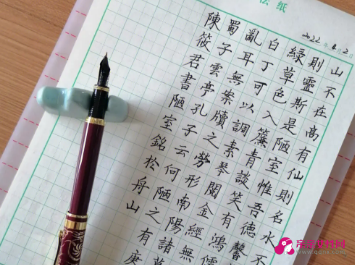 法紙
山不在高有仙則名水不
則靈斯是陋室惟吾德馨
綠草色入簾青談笑有鴻儒
白丁可以調素琴閱金經無
亂耳無案牘之勞形南陽諸
蜀子雲亭孔子云何陋之有
陳筱君書陋室銘於舟山